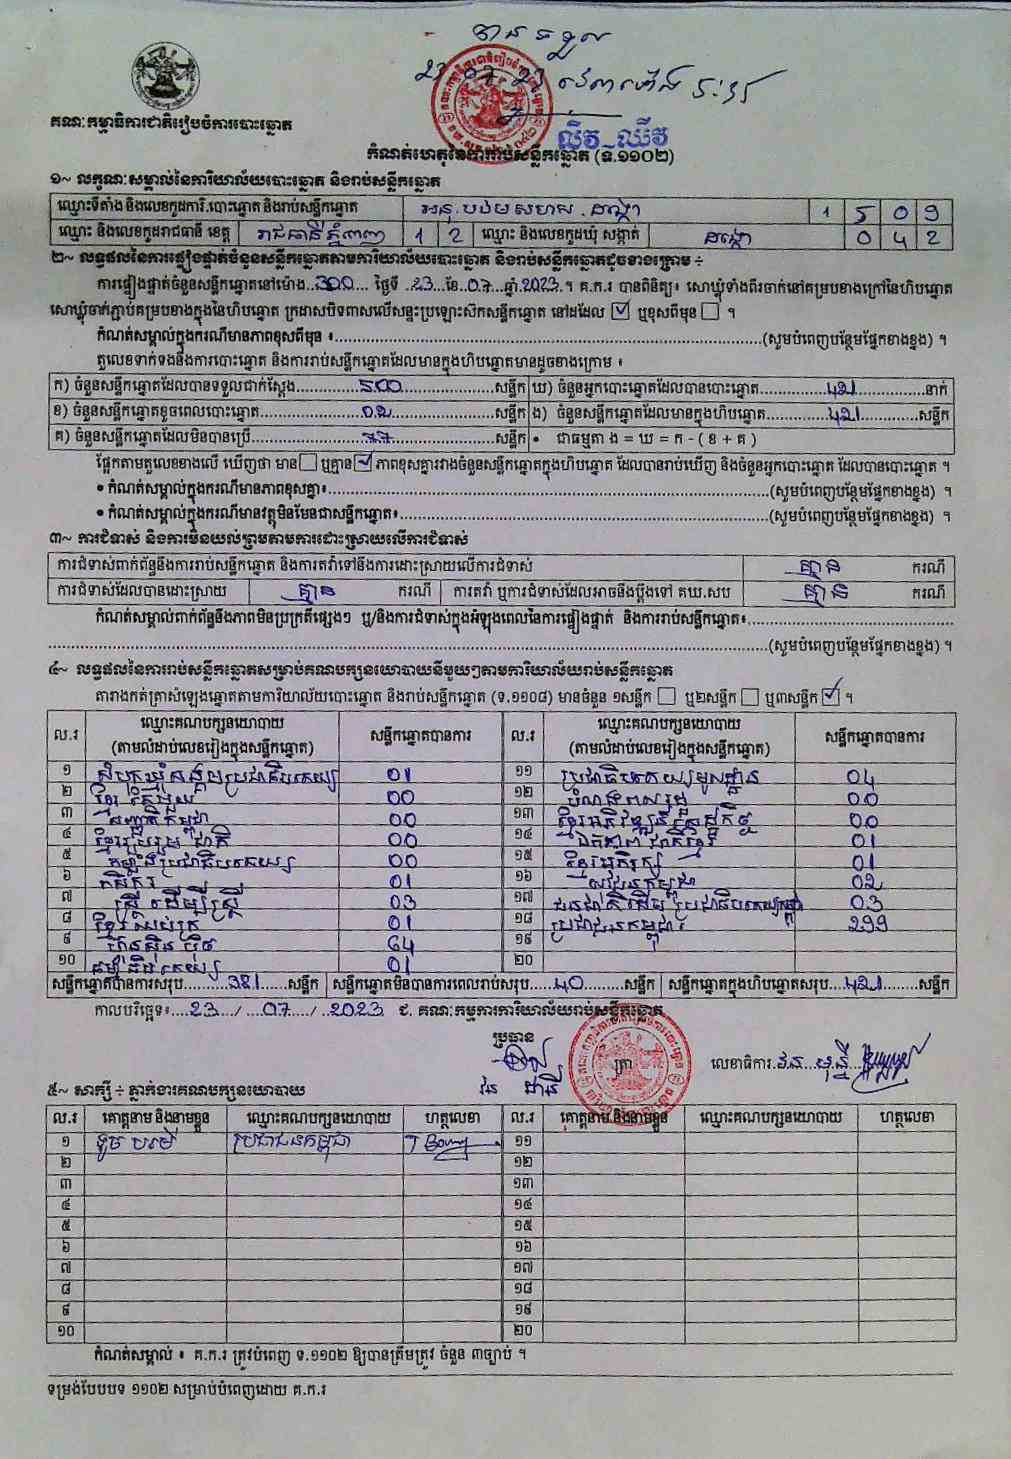 បានទទួល
23 07 23 វេលាម៉ោង
លីវ ឈីវ
គណៈកម្មាធិការជាតិរៀបចំការបោះឆ្នោត
កំណត់ហេតុនៃការរាប់សន្លឹកឆ្នោត (ទ.១១០២)
១~ លក្ខណៈសម្គាល់នៃការិយាល័យបោះឆ្នោត និងរាប់សន្លឹកឆ្នោត
ឈ្មោះទីតាំង និងលេខកូដការិ.បោះឆ្នោត និងរាប់សន្លឹកឆ្នោត អនុ.បឋមសហស.ដង្កោ 1 5 0 9
ឈ្មោះ និងលេខកូដរាជធានី ខេត្ត រាជធានីភ្នំពេញ 1 2 ឈ្មោះ និងលេខកូដឃុំ សង្កាត់ ដង្កោ 0 4 2
២~ លទ្ធផលនៃការផ្ទៀងផ្ទាត់ចំនួនសន្លឹកឆ្នោតតាមការិយាល័យបោះឆ្នោត និងរាប់សន្លឹកឆ្នោតដូចខាងក្រោម ÷
ការផ្ទៀងផ្ទាត់ចំនួនសន្លឹកឆ្នោតនៅម៉ោង..300... ថ្ងៃទី .23...ខែ.07...ឆ្នាំ.2023.។ គ.ក.រ បានពិនិត្យ៖ សោឃ្លុំទាំងពីរចាក់នៅគម្របខាងក្រៅនៃហិបឆ្នោត
សោឃ្លុំចាក់ភ្ជាប់គម្របខាងក្នុងនៃហិបឆ្នោត ក្រដាសបិទពាសលើសន្ទះប្រឡោះស៊កសន្លឹកឆ្នោត នៅដដែល ☑ ឬខុសពីមុន ☐ ។
កំណត់សម្គាល់ក្នុងករណីមានភាពខុសពីមុន ៖..........(សូមបំពេញបន្ថែមផ្នែកខាងខ្នង) ។
តួលេខទាក់ទងនឹងការបោះឆ្នោត និងការរាប់សន្លឹកឆ្នោតដែលមានក្នុងហិបឆ្នោតមានដូចខាងក្រោម ៖
ក) ចំនួនសន្លឹកឆ្នោតដែលបានទទួលជាក់ស្តែង..........500..........សន្លឹក ឃ) ចំនួនអ្នកបោះឆ្នោតដែលបានបោះឆ្នោត..........421..........នាក់
ខ) ចំនួនសន្លឹកឆ្នោតខូចពេលបោះឆ្នោត..........02..........សន្លឹក ង) ចំនួនសន្លឹកឆ្នោតដែលមានក្នុងហិបឆ្នោត..........421..........សន្លឹក
គ) ចំនួនសន្លឹកឆ្នោតដែលមិនបានប្រើ..........77..........សន្លឹក • ជាធម្មតា ង = ឃ = ក - ( ខ + គ )
ផ្អែកតាមតួលេខខាងលើ ឃើញថា មាន ☐ ឬគ្មាន ☑ ភាពខុសគ្នារវាងចំនួនសន្លឹកឆ្នោតក្នុងហិបឆ្នោត ដែលបានរាប់ឃើញ និងចំនួនអ្នកបោះឆ្នោត ដែលបានបោះឆ្នោត ។
• កំណត់សម្គាល់ក្នុងករណីមានភាពខុសគ្នា៖..........(សូមបំពេញបន្ថែមផ្នែកខាងខ្នង) ។
• កំណត់សម្គាល់ក្នុងករណីមានវត្ថុមិនមែនជាសន្លឹកឆ្នោត៖..........(សូមបំពេញបន្ថែមផ្នែកខាងខ្នង) ។
៣~ ការជំទាស់ និងការមិនយល់ព្រមតាមការដោះស្រាយលើការជំទាស់
ការជំទាស់ពាក់ព័ន្ធនឹងការរាប់សន្លឹកឆ្នោត និងការតវ៉ាទៅនឹងការដោះស្រាយលើការជំទាស់ គ្មាន ករណី
ការជំទាស់ដែលបានដោះស្រាយ គ្មាន ករណី ការតវ៉ា ឬការជំទាស់ដែលអាចនឹងប្តឹងទៅ គឃ.សប គ្មាន ករណី
កំណត់សម្គាល់ពាក់ព័ន្ធនឹងភាពមិនប្រក្រតីផ្សេងៗ ឬ/និងការជំទាស់ក្នុងអំឡុងពេលនៃការផ្ទៀងផ្ទាត់ និងការរាប់សន្លឹកឆ្នោត៖..........
..........(សូមបំពេញបន្ថែមផ្នែកខាងខ្នង) ។
៤~ លទ្ធផលនៃការរាប់សន្លឹកឆ្នោតសម្រាប់គណបក្សនយោបាយនីមួយៗតាមការិយាល័យរាប់សន្លឹកឆ្នោត
តារាងកត់ត្រាសំឡេងឆ្នោតតាមការិយាល័យបោះឆ្នោត និងរាប់សន្លឹកឆ្នោត (ទ.១១០៨) មានចំនួន ១សន្លឹក ☐ ឬ២សន្លឹក ☐ ឬ៣សន្លឹក ☑ ។
ល.រ ឈ្មោះគណបក្សនយោបាយ (តាមលំដាប់លេខរៀងក្នុងសន្លឹកឆ្នោត) សន្លឹកឆ្នោតបានការ ល.រ ឈ្មោះគណបក្សនយោបាយ (តាមលំដាប់លេខរៀងក្នុងសន្លឹកឆ្នោត) សន្លឹកឆ្នោតបានការ
១ សំបុកឃ្មុំសង្គមប្រជាធិបតេយ្យ 01 ១១ ប្រជាធិបតេយ្យមូលដ្ឋាន 04
២ ខ្មែររួបរួម 00 ១២ 00
៣ សញ្ជាតិកម្ពុជា 00 ១៣ ខ្មែរអភិវឌ្ឍន៍សេដ្ឋកិច្ច 00
៤ ខ្មែររួបរួមជាតិ 00 ១៤ ឯកភាពជាតិខ្មែរ 01
៥ កម្លាំងប្រជាធិបតេយ្យ 00 ១៥ ខ្មែរអភិរក្ស 01
៦ កសិករ 01 ១៦ 02
៧ ស្ត្រីដើម្បីស្ត្រី 03 ១៧ ជនជាតិដើមប្រជាធិបតេយ្យកម្ពុជា 03
៨ ខ្មែរឈប់ក្រ 01 ១៨ ប្រជាជនកម្ពុជា 299
៩ ហ៊្វុនស៊ិនប៉ិច 64 ១៩
១០ ធម្មាធិបតេយ្យ 01 ២០
សន្លឹកឆ្នោតបានការសរុប..........381..........សន្លឹក សន្លឹកឆ្នោតមិនបានការពេលរាប់សរុប..........40..........សន្លឹក សន្លឹកឆ្នោតក្នុងហិបឆ្នោតសរុប..........421..........សន្លឹក
កាលបរិច្ឆេទ៖....23..../....07..../..2023 ជ. គណៈកម្មការការិយាល័យរាប់សន្លឹកឆ្នោត
ប្រធាន
ត្រា លេខាធិការ
៥~ សាក្សី ÷ ភ្នាក់ងារគណបក្សនយោបាយ
ល.រ គោត្តនាម និងនាមខ្លួន ឈ្មោះគណបក្សនយោបាយ ហត្ថលេខា ល.រ គោត្តនាម និងនាមខ្លួន ឈ្មោះគណបក្សនយោបាយ ហត្ថលេខា
១ ប្រជាជនកម្ពុជា ១១
២ ១២
៣ ១៣
៤ ១៤
៥ ១៥
៦ ១៦
៧ ១៧
៨ ១៨
៩ ១៩
១០ ២០
កំណត់សម្គាល់ ៖ គ.ក.រ ត្រូវបំពេញ ទ.១១០២ ឱ្យបានត្រឹមត្រូវ ចំនួន ៣ច្បាប់ ។
ទម្រង់បែបបទ ១១០២ សម្រាប់បំពេញដោយ គ.ក.រ